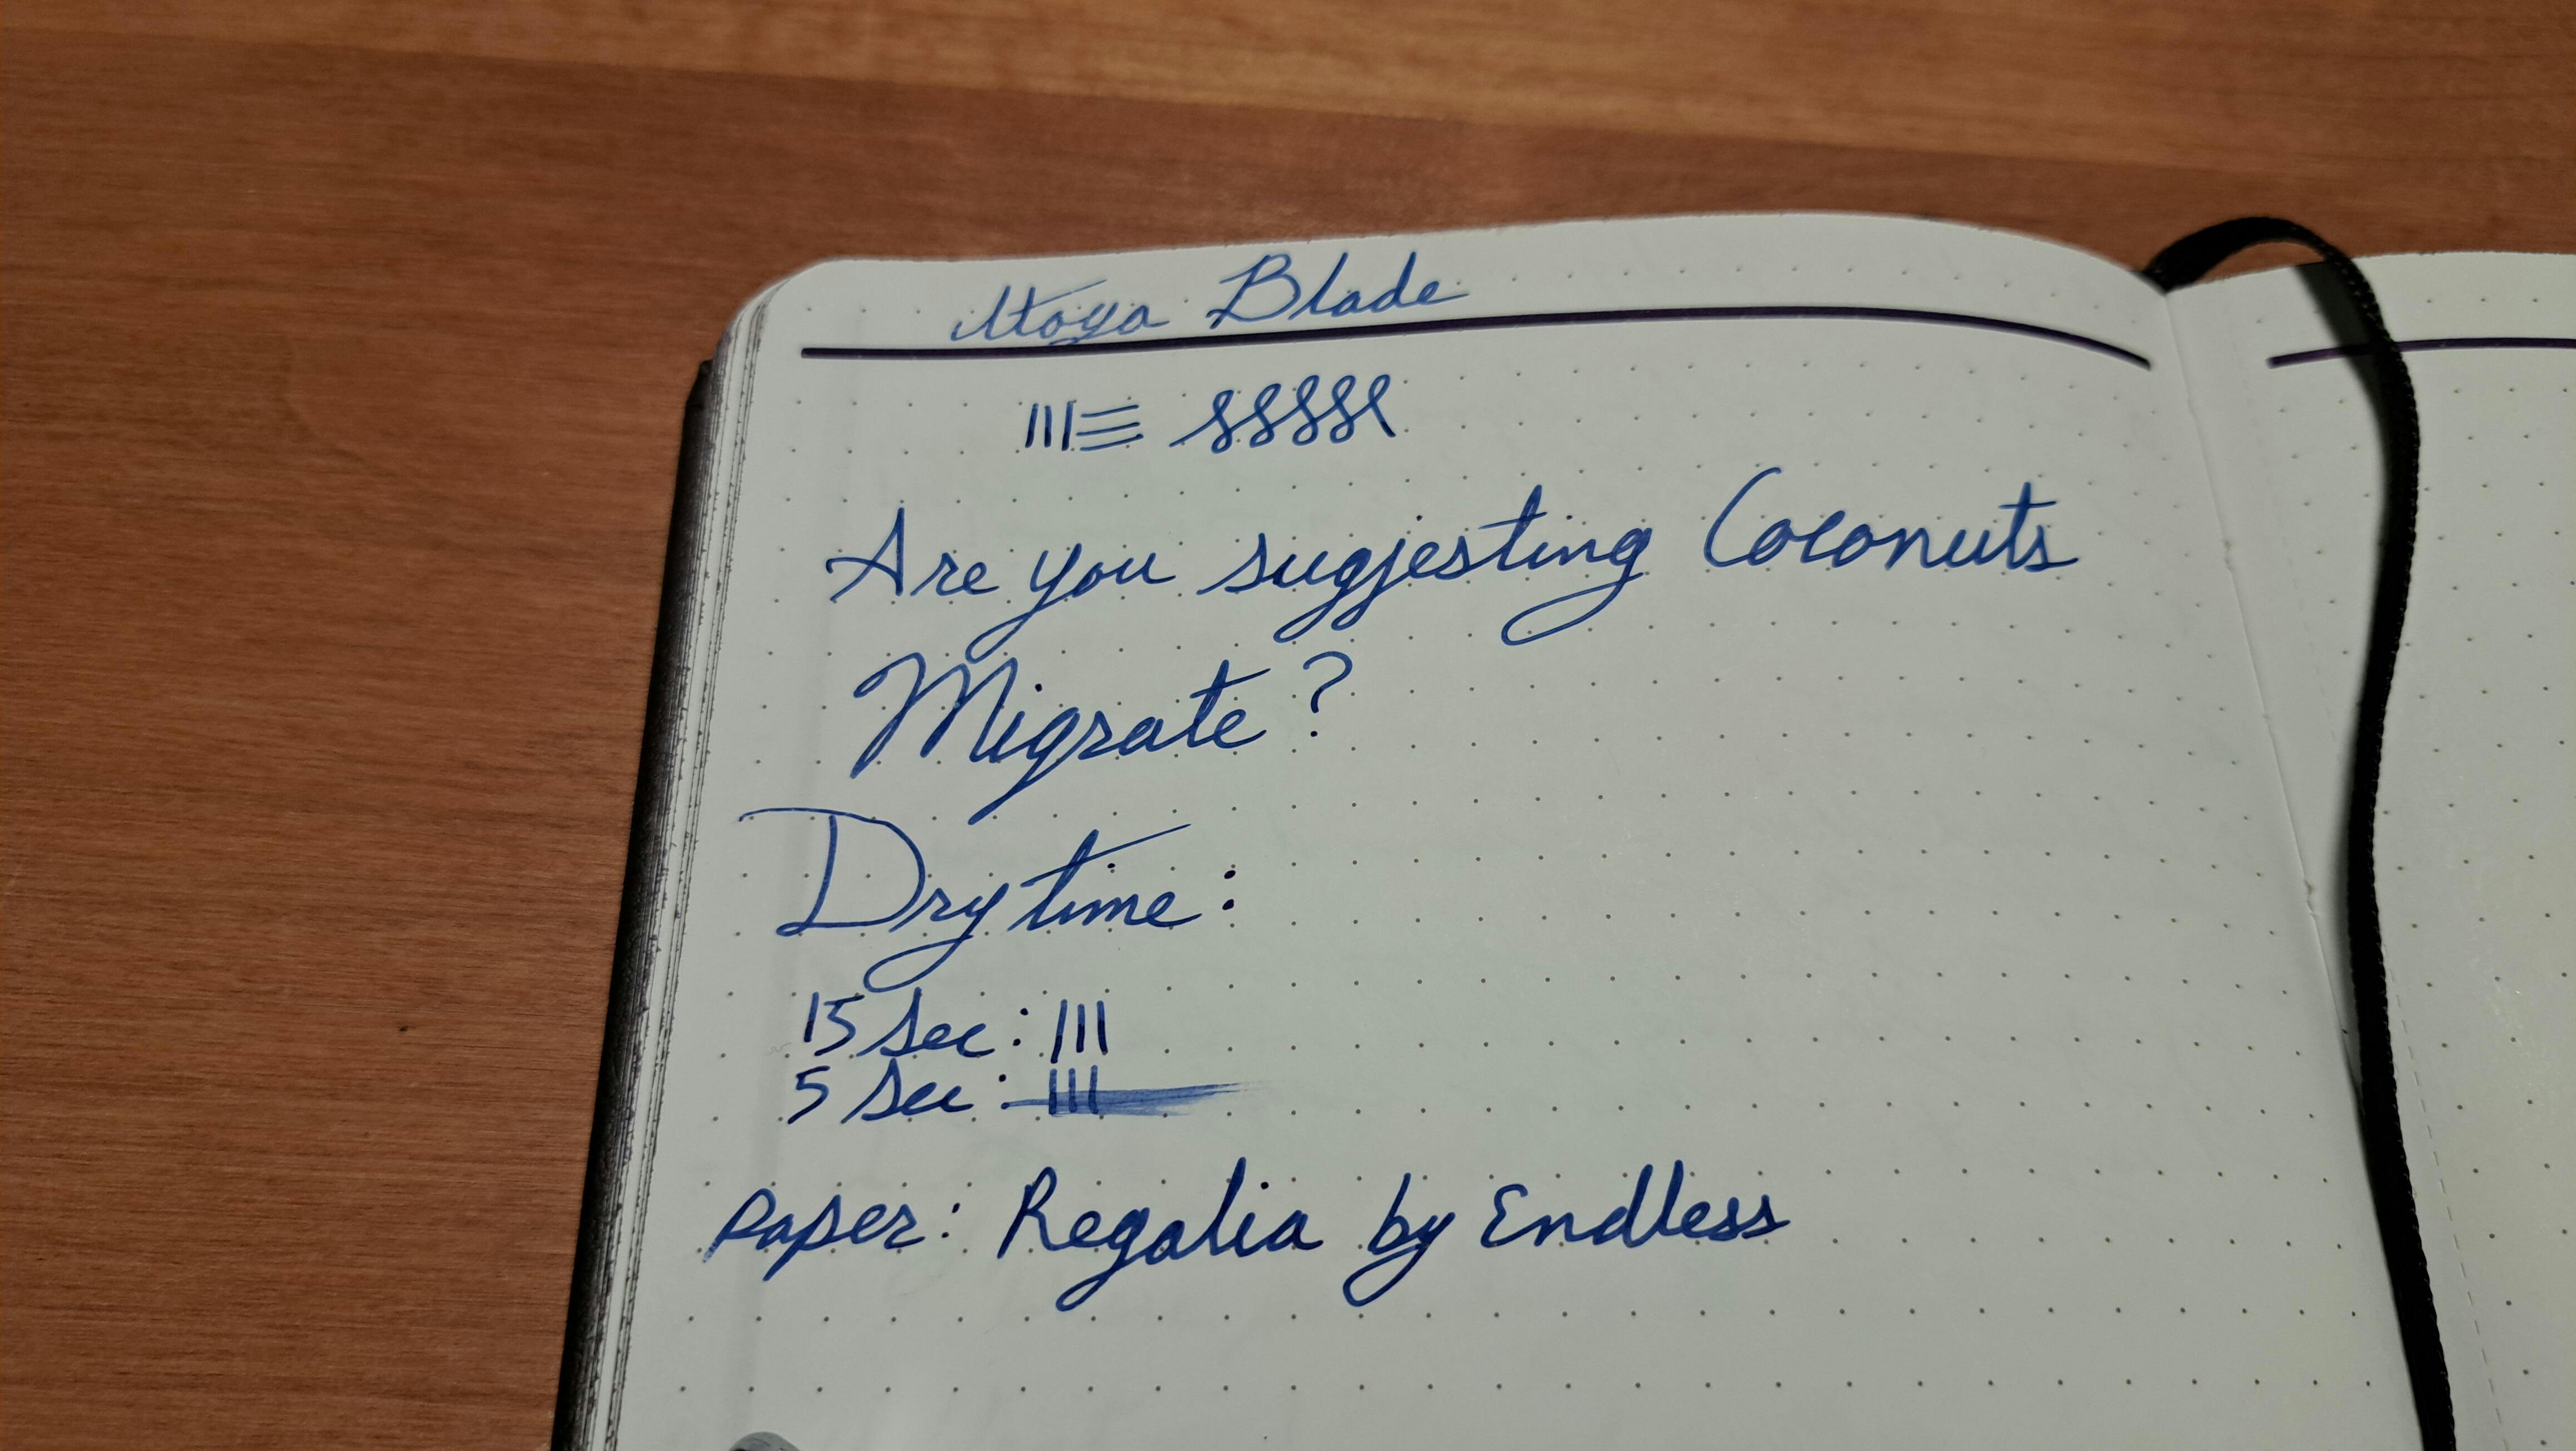 Itoya Blade
Are you suggesting Coconuts
Migrate?
Dry time:
15 sec:
5 sec:
Paper: Regalia by Endless